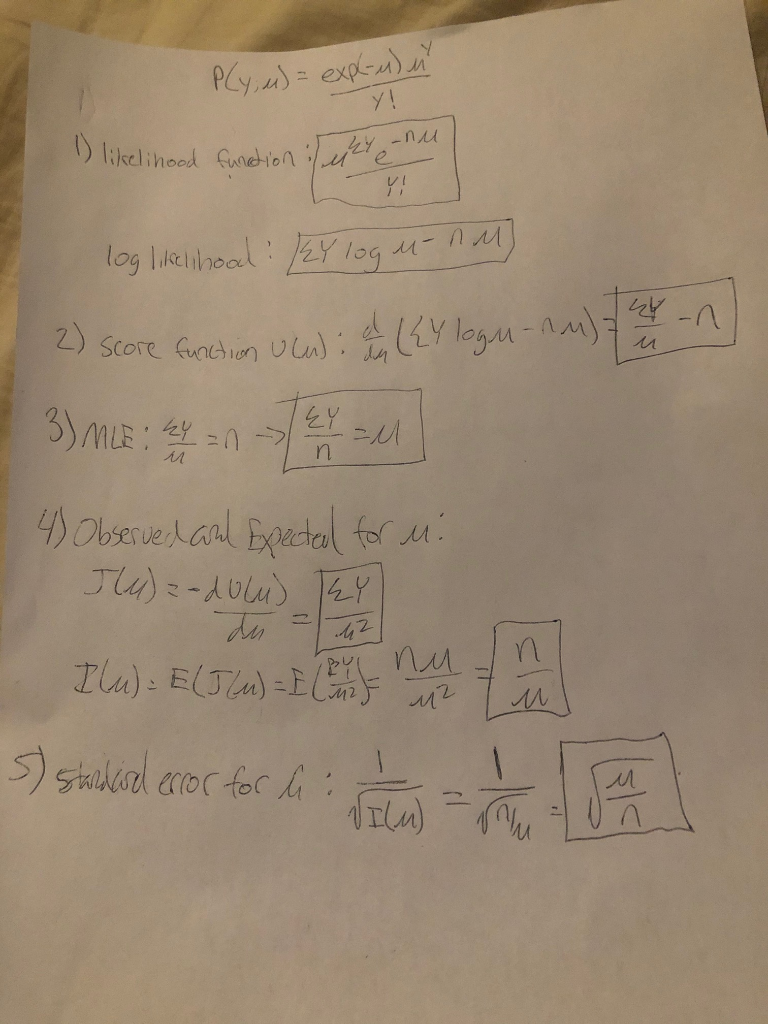 P(Y,μ) = exp(-μ) μ^Y / Y!
1) likelihood function : μ^ΣY e^-nμ / Y!
log likelihood : ΣY log μ - n μ
2) score function U(μ) : d/dμ (ΣY log μ - n μ) = ΣY/μ - n
3) MLE : ΣY/μ = n → ΣY/n = μ
4) Observed and Expected for μ :
J(μ) = -dU(μ)/dμ = ΣY/μ²
I(μ) = E(J(μ) = E(ΣY/μ²) = nμ/μ² = n/μ
5) standard error for û : 1/√I(μ) = 1/√n/μ = √μ/n